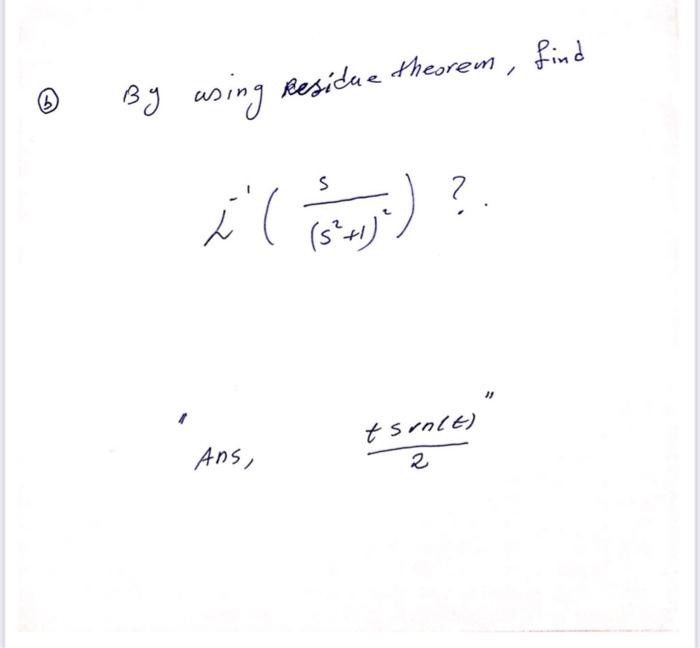 ⓑ By using Residue theorem, find
L⁻¹ ( s / (s²+1)² ) ?.
" Ans, t sin(t) / 2 "